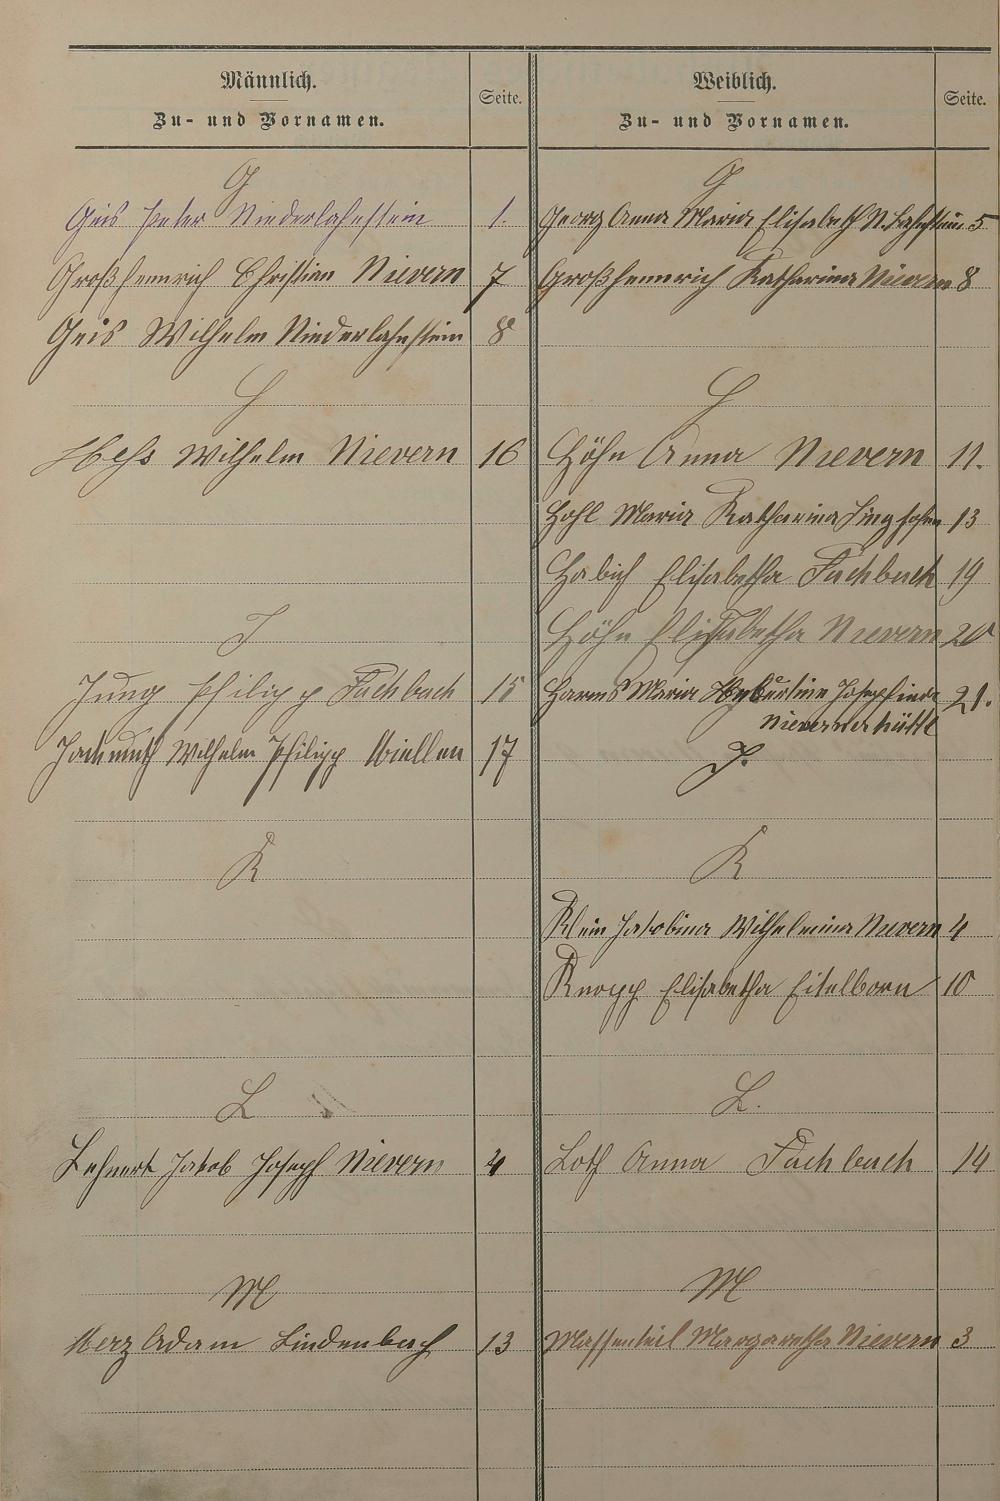 Männlich.
Zu- und Vornamen.
Seite.
G
Geis Peter Niederlahnstein 1.
Großhennrich Christian Nievern 7
Geis Wilhelm Niederlahnstein 8
H
Heßs Wilhelm Nievern 16
J
Jung Philipp Fachbach 15
Wilhelm Philipp Miellen 17
K
L
Lehnert Jakob Joseph Nievern 4
M
Merz Adam Lindenbach 13
Weiblich.
Zu- und Vornamen.
Seite.
G
Georg Anna Maria Elisabeth N. Lahnstein 5
Großhennrich Katharina Nievern 8
H
Höhn Anna Nievern 11.
Hohl Maria Katharina Singhofen 13
Habich Elisabetha Fachbach 19
Höhn Elisabetha Nievern 20
Harms Maria Josephine 21.
Nievernerhütte
J.
K
Klein Jakobina Wilhelmina Nievern 4
Knopp Elisabetha Eitelborn 10
L.
Loth Anna Fachbach 14
M
Massenkeil Margaretha Nievern 3